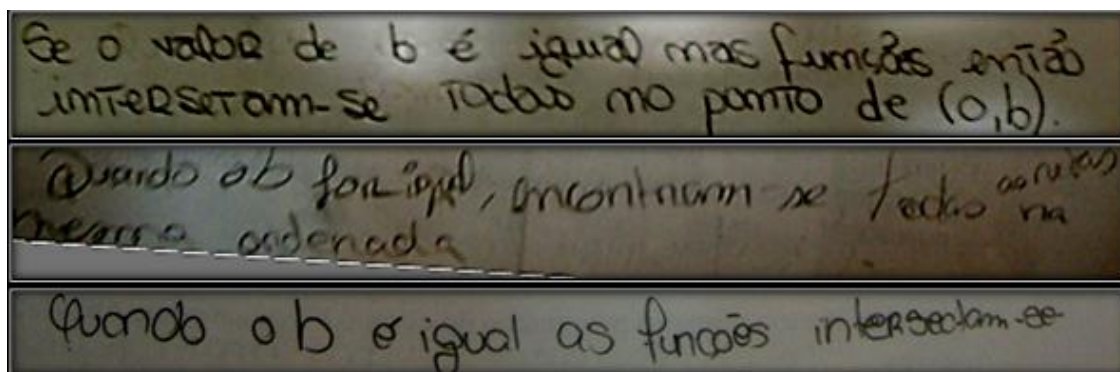 Se o valor de b é igual mas funções então
intersetam-se todas no ponto de (0,b).
Quando o b for igual, encontram se todas as retas na
mesma ordenada
Quando o b é igual as funcões intersectam-se